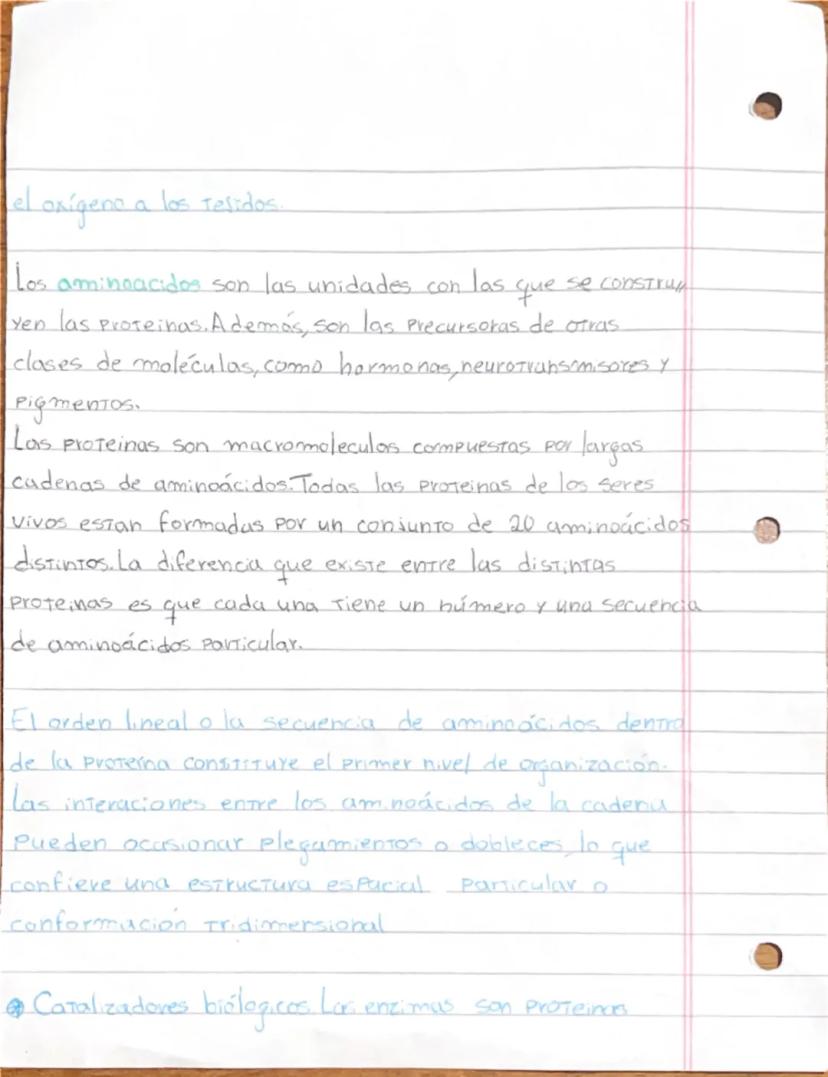 el oxígeno a los Tejidos.
Los aminoacidos son las unidades con las que se constru
yen las proteinas. Además, son las precursoras de otras
clases de moléculas, como hormonas, neurotransmisores y
pigmentos.
Las proteinas son macromoleculas compuestas por largas
cadenas de aminoácidos. Todas las proteinas de los seres
vivos estan formadas por un conjunto de 20 aminoácidos
distintos. La diferencia que existe entre las distintas
proteinas es que cada una tiene un número y una secuencia
de aminoácidos particular.
El orden lineal o la secuencia de aminoácidos dentro
de la proteína constituye el primer nivel de organización.
Las interaciones entre los aminoácidos de la cadena
pueden ocasionar plegamientos o dobleces, lo que
confiere una estructura espacial particular o
conformación tridimensional
Catalizadores biólogicos. Las enzimas son proteinas